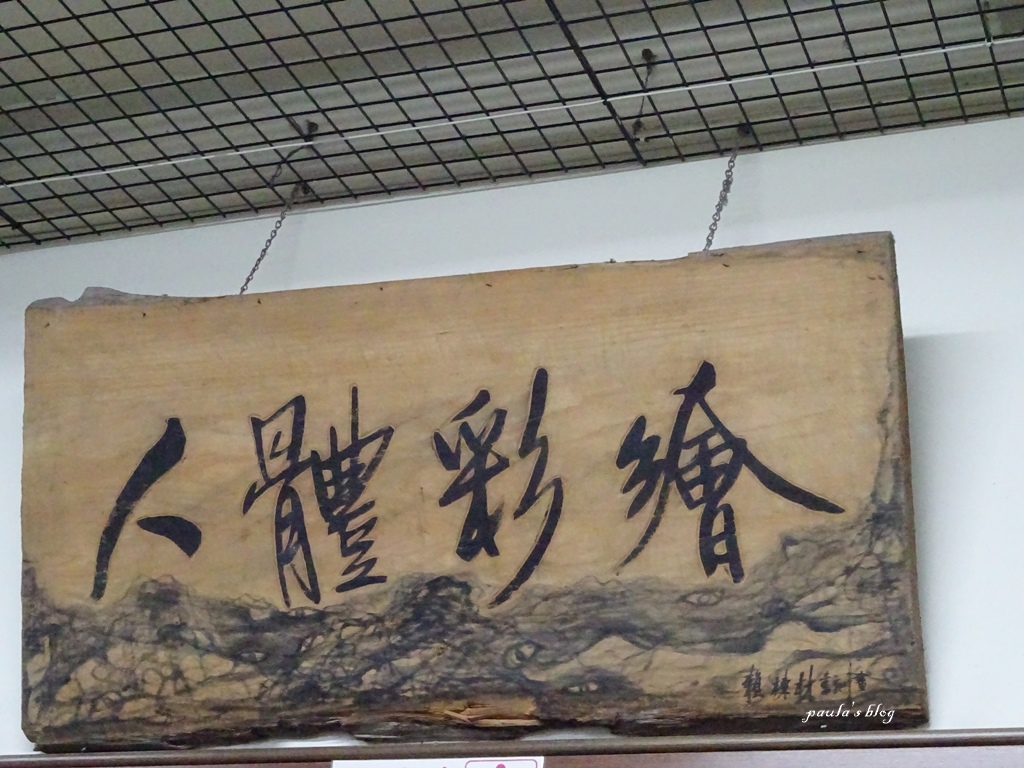 人體彩繪
paula's blog